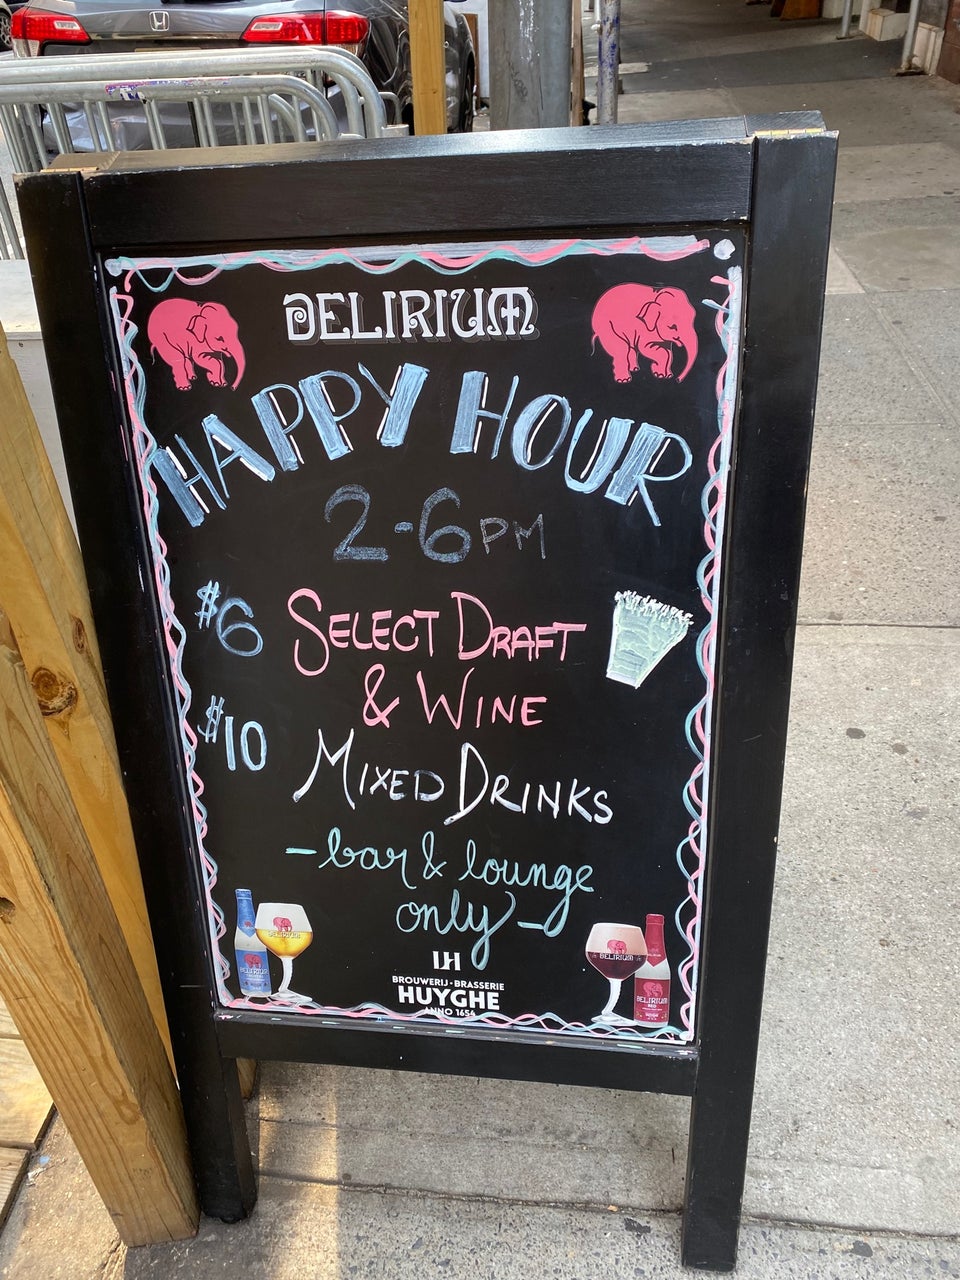 DELIRIUM
HAPPY HOUR
2-6PM
$6 SELECT DRAFT
& WINE
$10 MIXED DRINKS
-bar & lounge
only-
BROUWERIJ-BRASSERIE
HUYGHE
ANNO 1654
DELIRIUM
DELIRIUM
DELIRIUM
DELIRIUM
RED